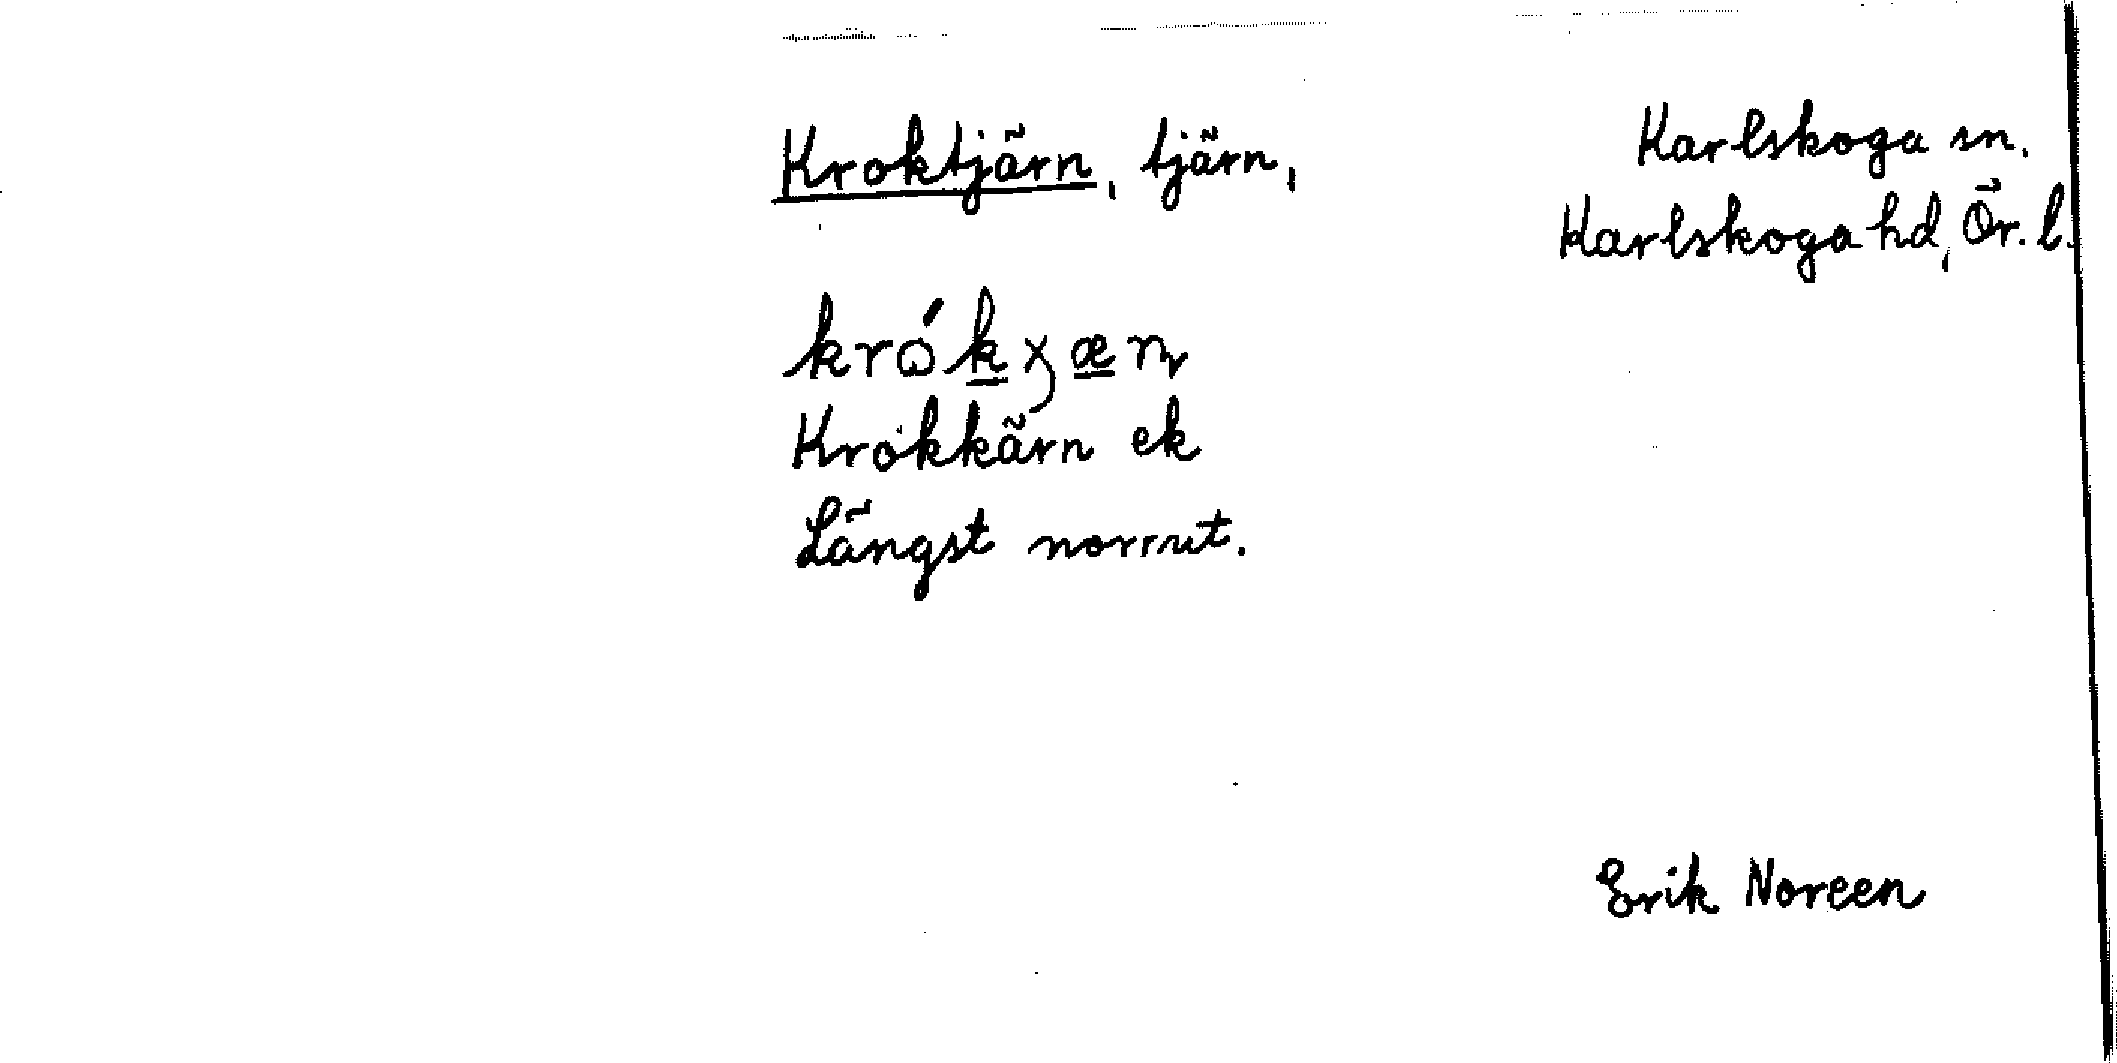 Kroktjärn, tjärn,
Karlskoga sn.
Karlskoga hd, Ör. l.
Krokkärn ek
Längst norrut.
Erik Noreen